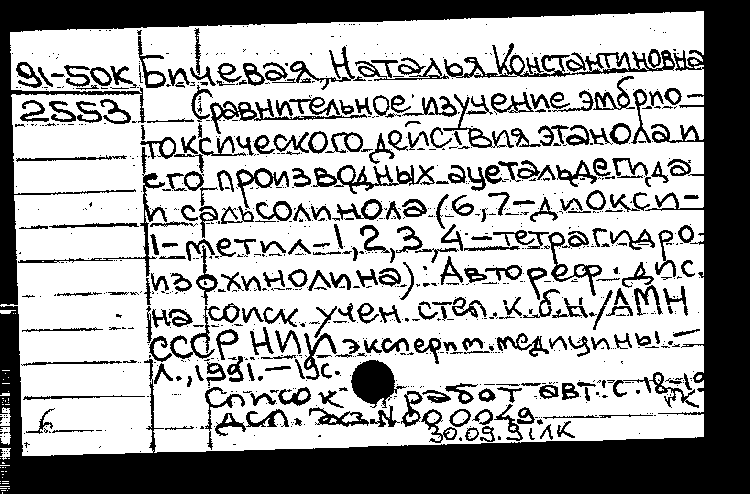 91-50К Бичевая, Наталья Константиновна
2553 Сравнительное изучение эмбрио-
токсического действия этанола и
его производных ацетальдегида
и сальсолинола (6,7-диокси-
1-метил-1,2,3,4-тетрагидро-
изохинолина): Автореф. дис.
на соиск. учен. степ. к.б.н./АМН
СССР, НИИ эксперим. медицины. -
Л., 1991. - 19с.
Список работ авт.: с. 18-19
ДСП. Экз. N 000049.
30.09.91 ЛК